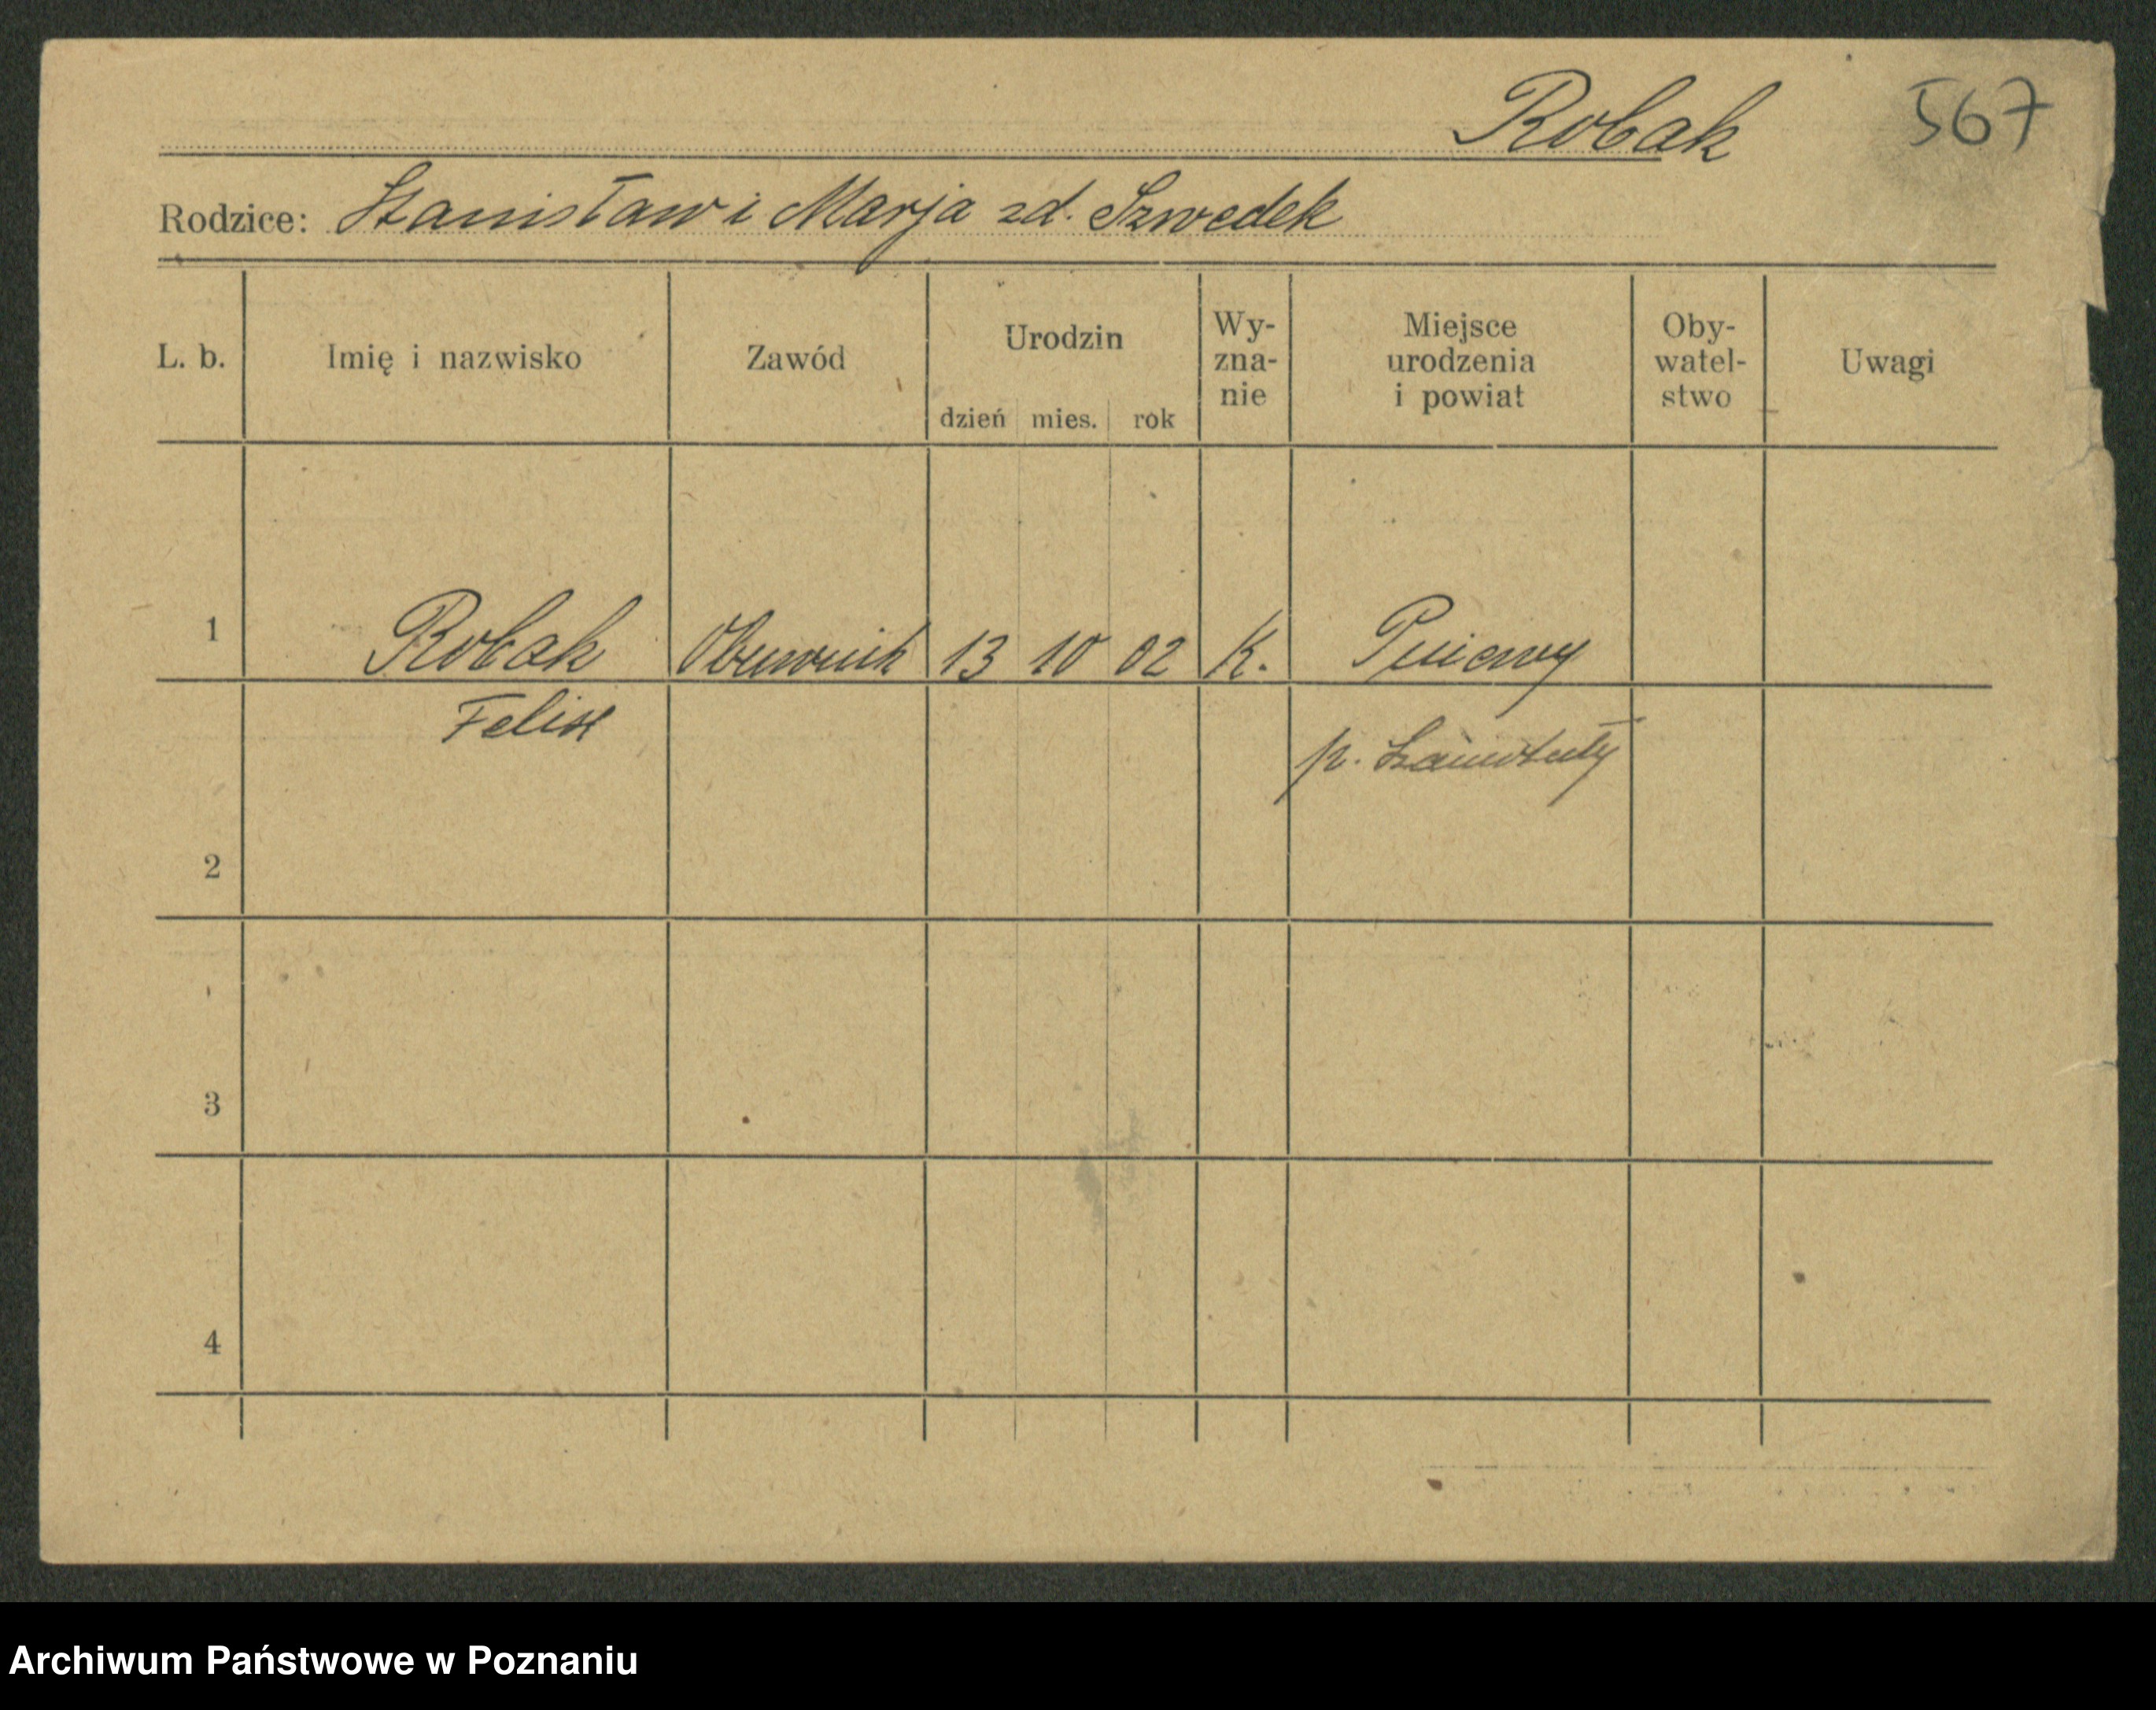 Robak 567
Rodzice: Stanisław i Marja zd. Szwedek
L. b. Imię i nazwisko Zawód Urodzin dzień mies. rok Wy- zna- nie Miejsce urodzenia i powiat Oby- watel- stwo Uwagi
1 Robak Obuwnik 13 10 02 K. Pniewy
Felix p. Szamotuły
2
3
4
Archiwum Państwowe w Poznaniu